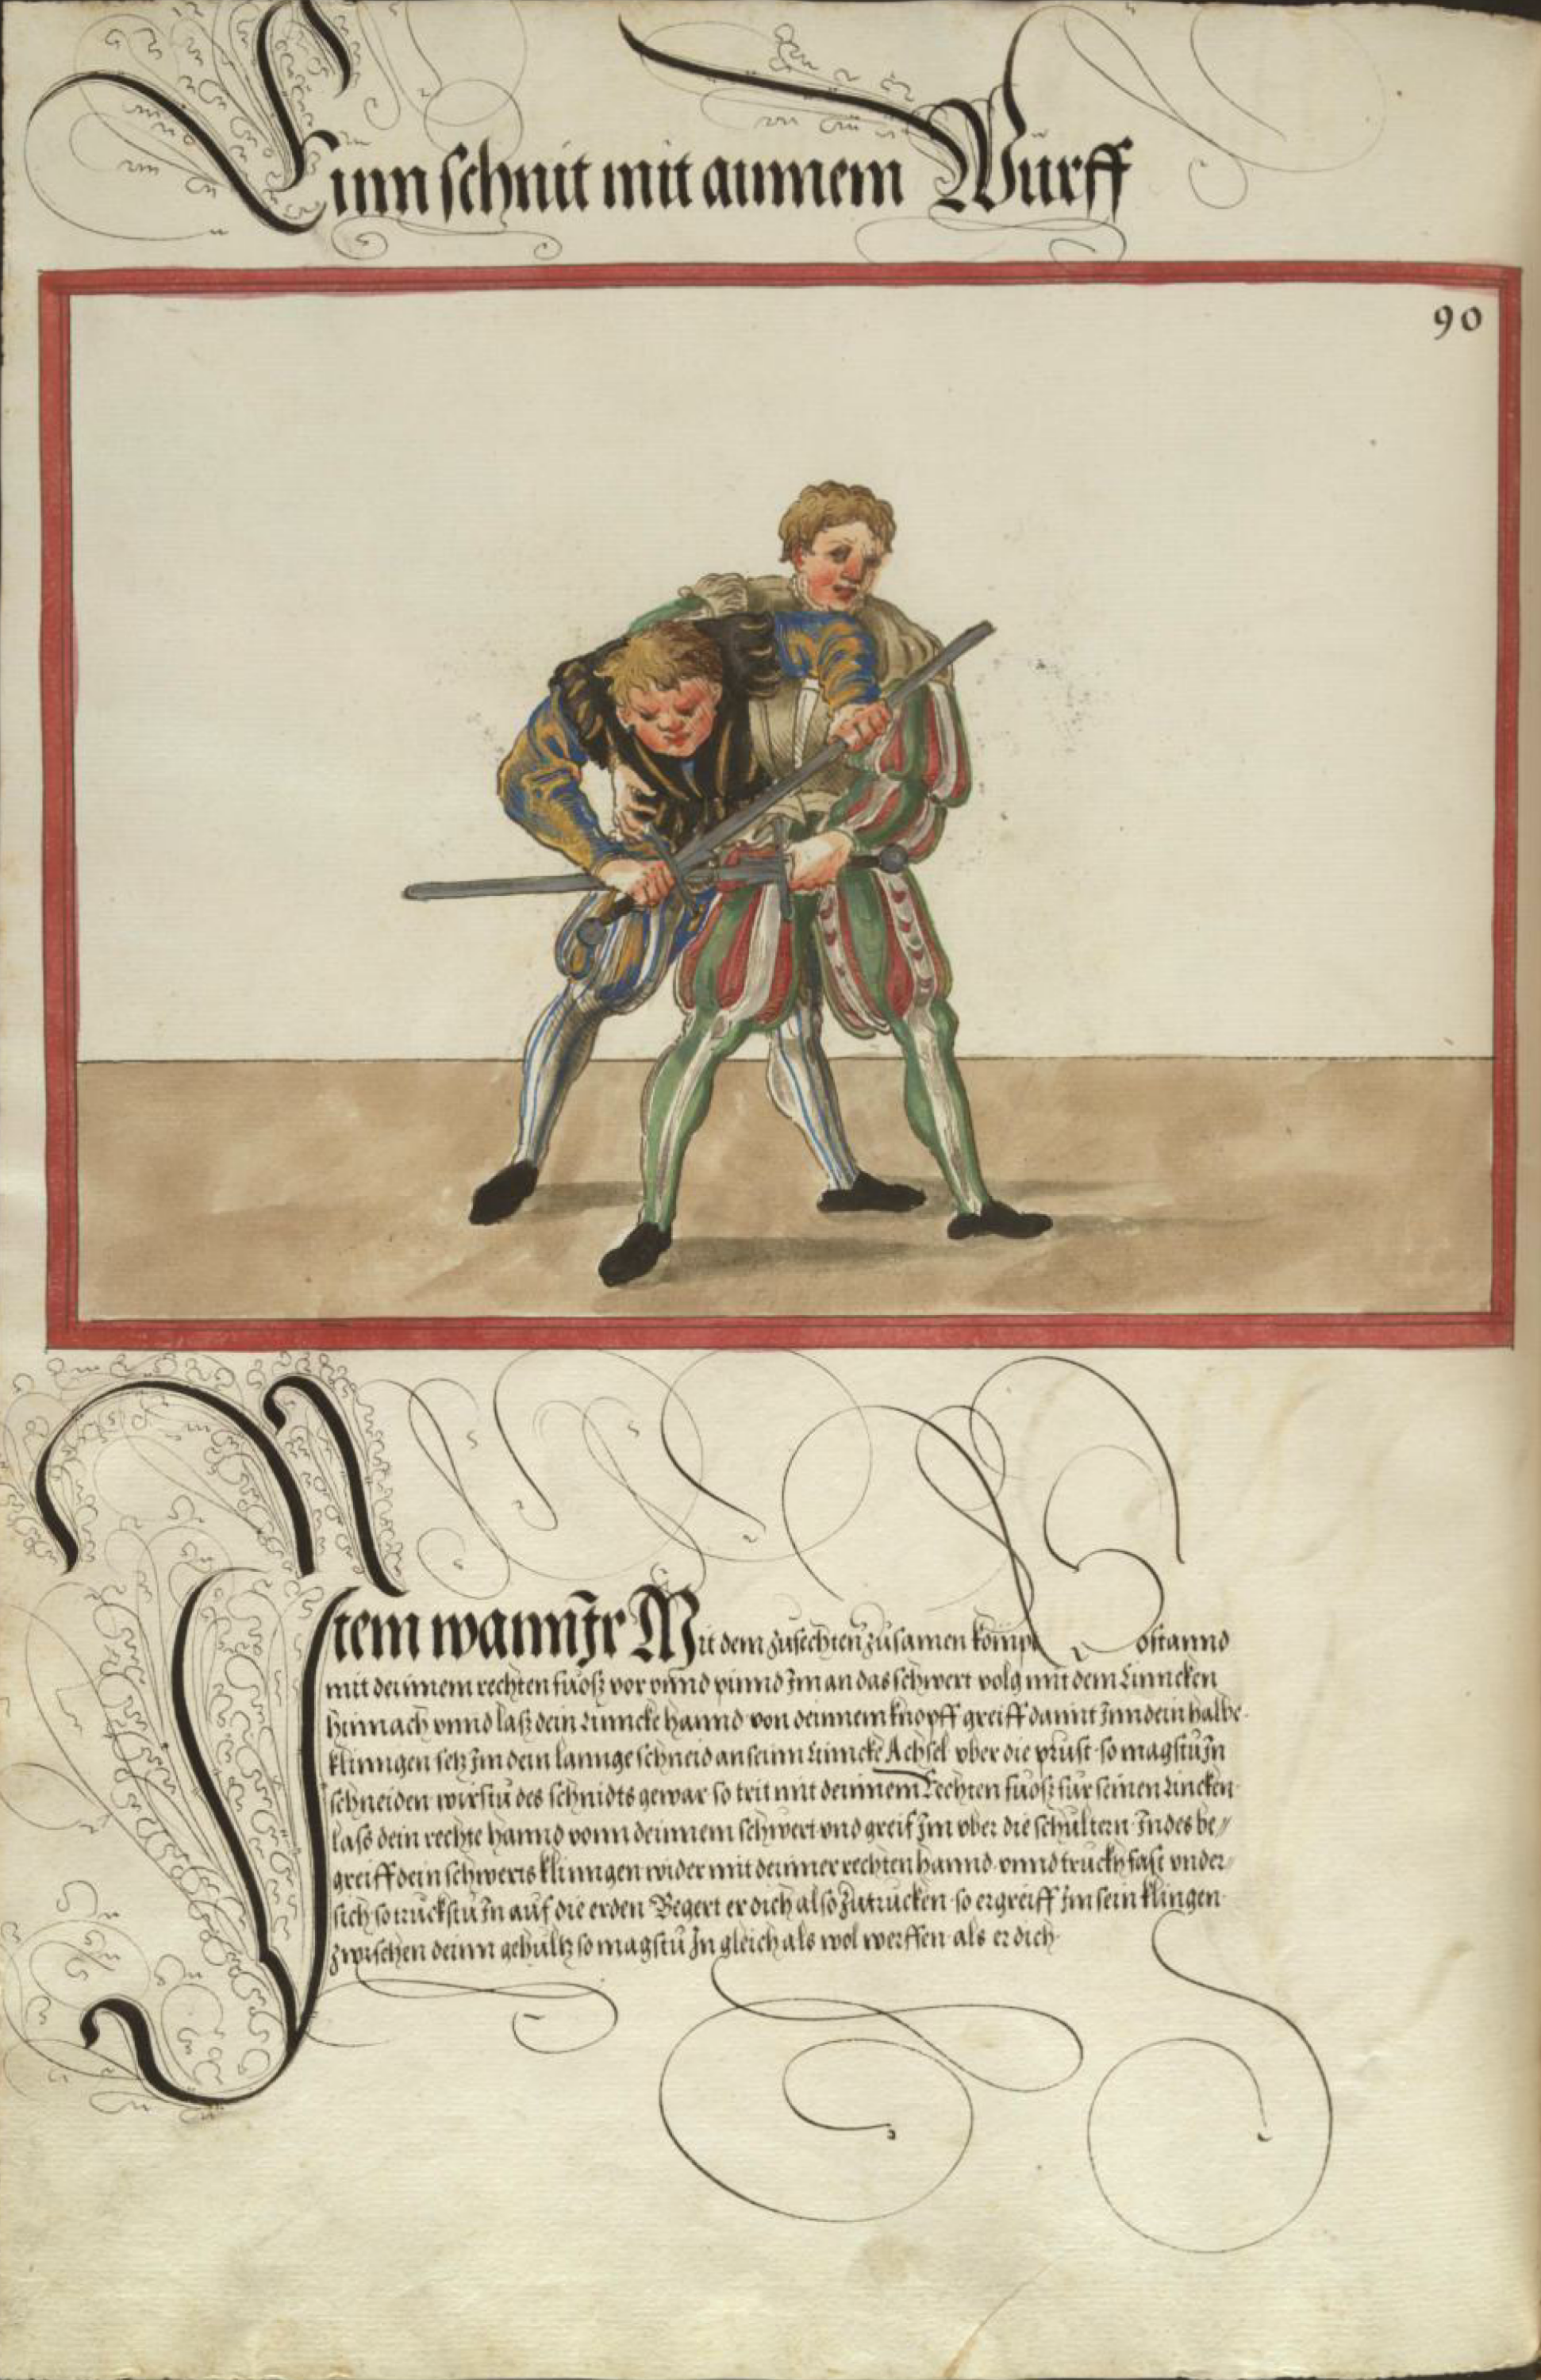 Ainn schnit mit ainnem Wurff
90
Item wann Ir Mit dem zufechten zusamen kompt So stannd
mit deinnem rechten fuosz vor vnnd pinnd Im an das schwert volg mit dem Linncken
hinnach vnnd lasz dein Linncke hannd von deinnem knopff greiff damit Inn dein halbe
klinngen setz Im dein lannge schneid an seinn Lincke Achsel vber die prust so magstu In
schneiden wirstu des schnidts gewar so trit mit deinnem Rechten fuosz fur seinen Lincken
lass dein rechte hannd vonn deinnem schwert vnd greif Im vber die schultern Indes be//
greiff dein schwerts klinngen wider mit deinner rechten hannd vnnd truckh fast vnder//
sich so truckstu In auf die erden Begert er dich also zutrucken so ergreiff Im sein klingen
zwischen deinn gehultz so magstu In gleich als wol werffen als er dich